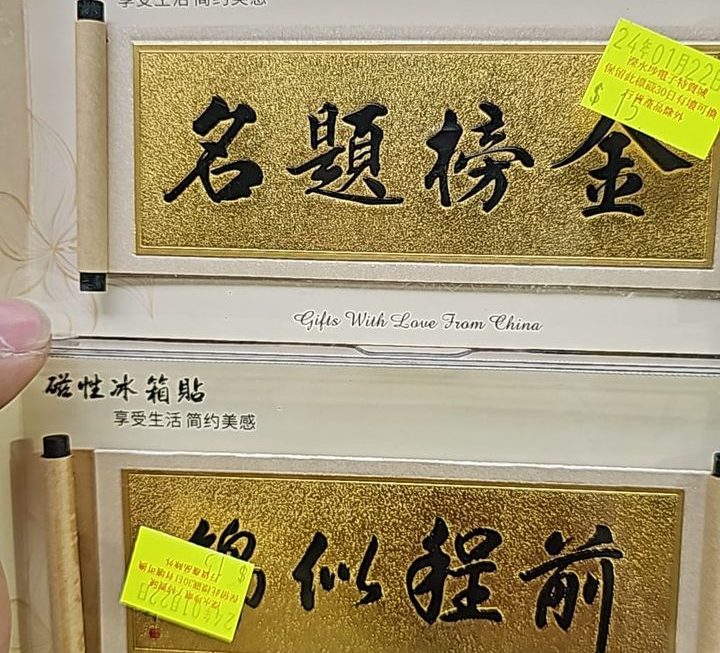 享受生活 简约美感
24年01月22日
深水埗電子特賣城
保留此標籤30日有壞可換
行貨產品除外
$ 15
金榜題名
Gifts With Love From China
磁性冰箱貼
享受生活 简约美感
前程似錦
24年01月22日
深水埗電子特賣城
保留此標籤30日有壞可換
行貨產品除外
$ 15